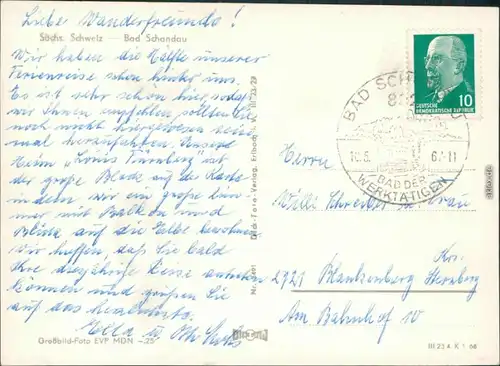 Liebe Wanderfreunde!
Sächs. Schweiz — Bad Schandau
Wir haben die Hälfte unserer
Ferienreise schon hinter uns.
Es ist sehr schön hier, sodaß
wir Ihnen empfehlen sollten, die
noch nicht hiergewesen sein
mal herzufahren. Unser
Heim „Louis Fürnberg" ist
der große Block auf der Karte
in dem, wir ein große Zim-
mer mit Balkon und
Blick auf die Elbe bewohnen
Wir hoffen, daß Sie bald
Ihre diesjährige Reise antreten
können und grüßen Sie
auf das herzlichste
Ella u.
Großbild-Foto EVP MDN -.25
III/23/29
Verlag, Erlbach
Nr.
DEUTSCHE
DEMOKRATISCHE REPUBLIK
10
BAD
BAD DER
WERKTÄTIGEN
Herrn
Willi Schreiber u. Frau
2921 Blankenberg Krs. Sternberg
Am Bahnhof 10
III 23 4 K 1 68